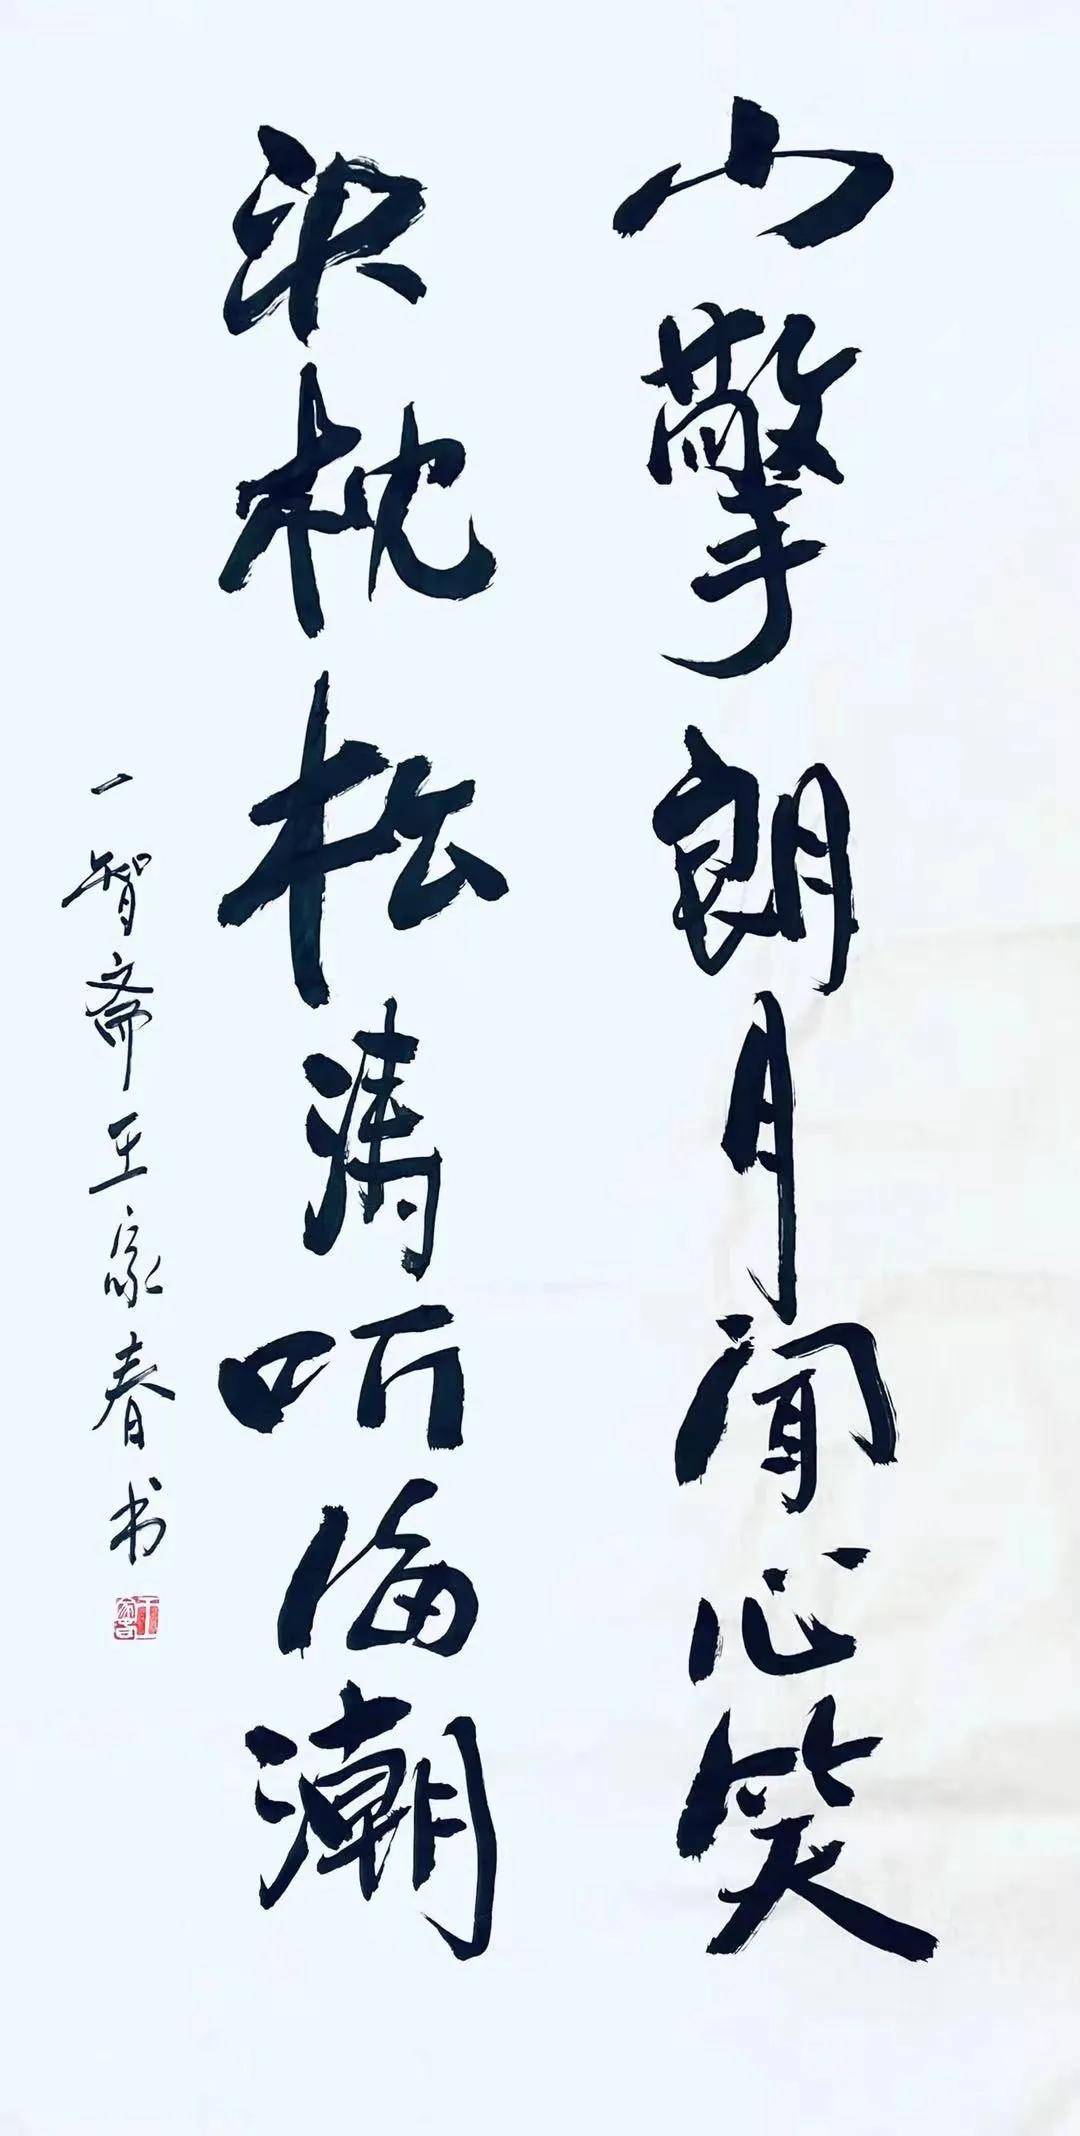 山擎朗月闻心笑
枕松涛听海潮
一智斋王家春书